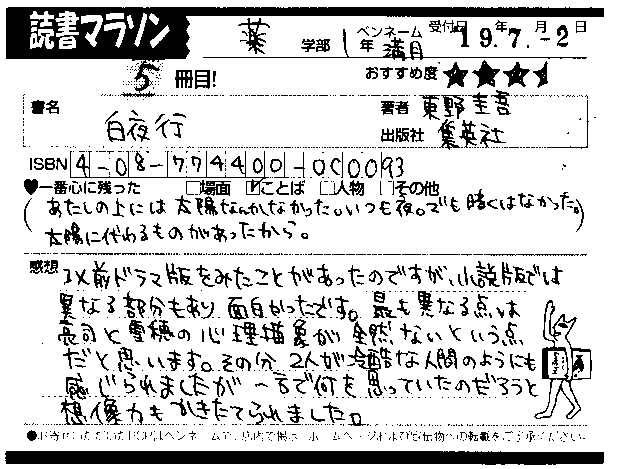 読書マラソン 薬 学部 1年 ペンネーム 満月 受付日 '19年7月-2日
5 冊目! おすすめ度 ★★★
書名 白夜行 著者 東野圭吾
出版社 集英社
ISBN 4-08-774400-0C0093
♥一番心に残った □場面 ☑ことば □人物 □その他
(あたしの上には太陽なんかなかった。いつも夜。でも暗くはなかった。
太陽に代わるものがあったから。)
感想 以前ドラマ版をみたことがあったのですが、小説版では
異なる部分もあり面白かったです。最も異なる点は
亮司と雪穂の心理描象が全然ないという点
だと思います。その分2人が冷酷な人間のようにも
感じられましたが一言で何を思っていたのだろうと
想像力もかきたてられました。